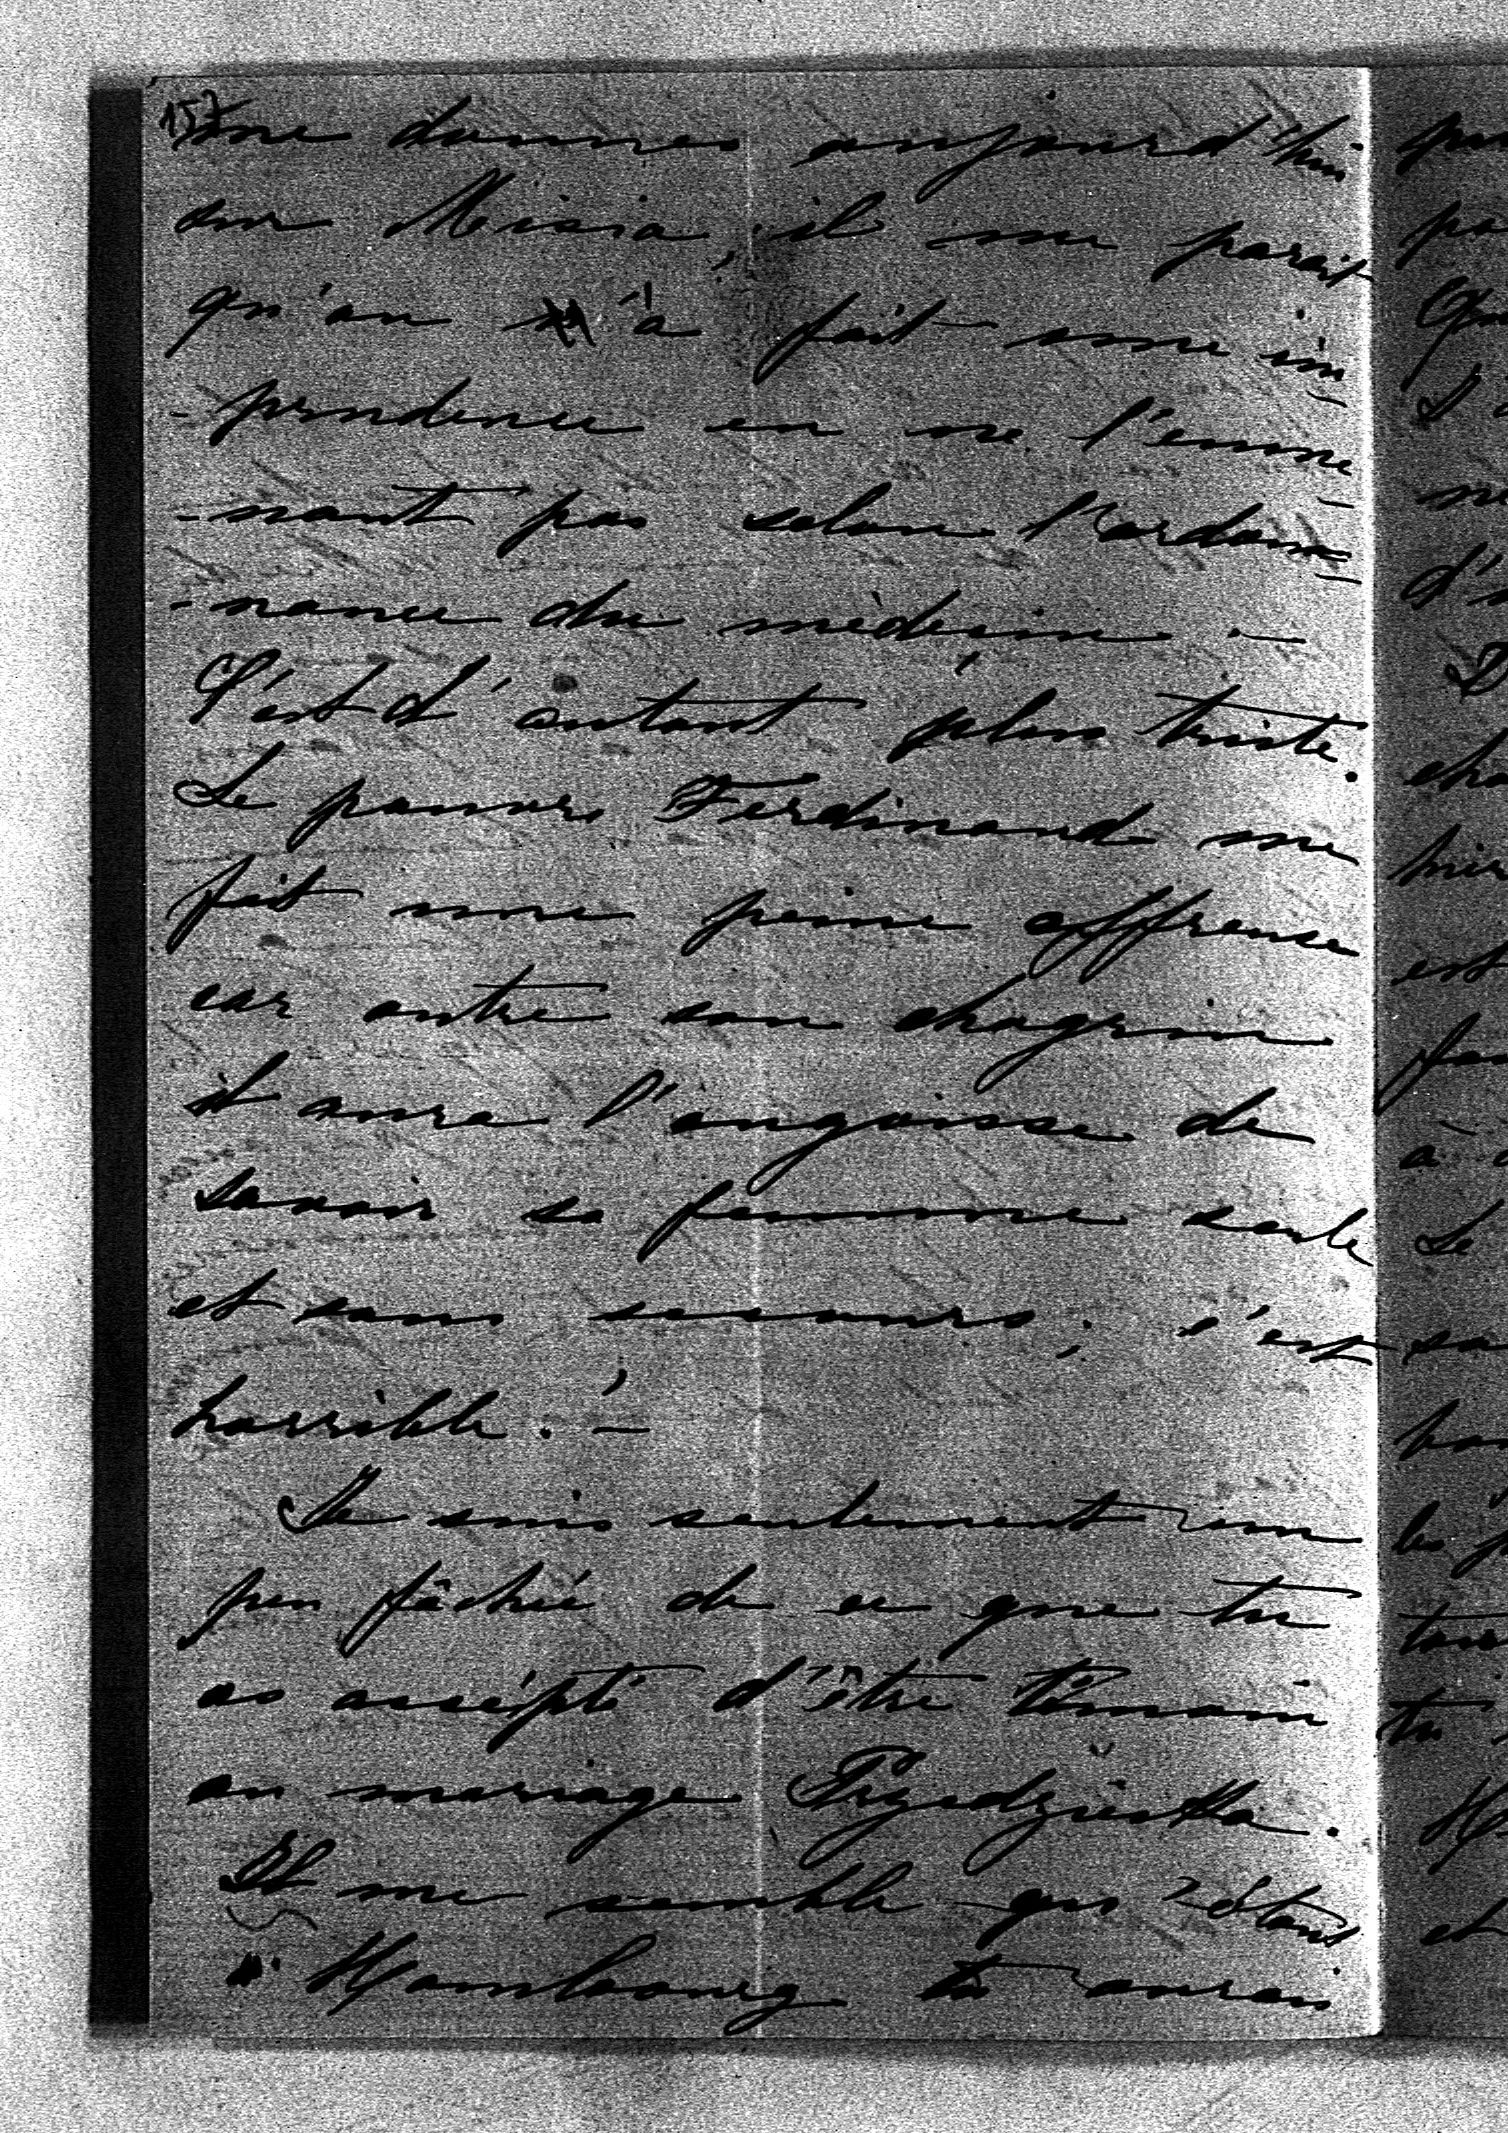 157
me donnes aujourd'hui
sur Misia, il me parait
qu'on a fait une im
-prudence en ne l'emme
-nant pas selon l'ordon
-nance du médecin. —
C'est d'autant plus triste.
Le pauvre Ferdinand me
fait une peine affreuse
car outre son chagrin
il aura l'angoisse de
savoir sa femme seule
et sans secours; c'est
horrible! —
Je suis seulement un
peu fâchée de ce que tu
as accépté d'être témoin
au mariage
Il me semble qu'étant
à Hambourg tu aurais